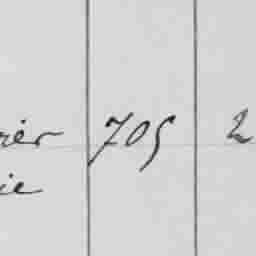 rér 705 2
ie